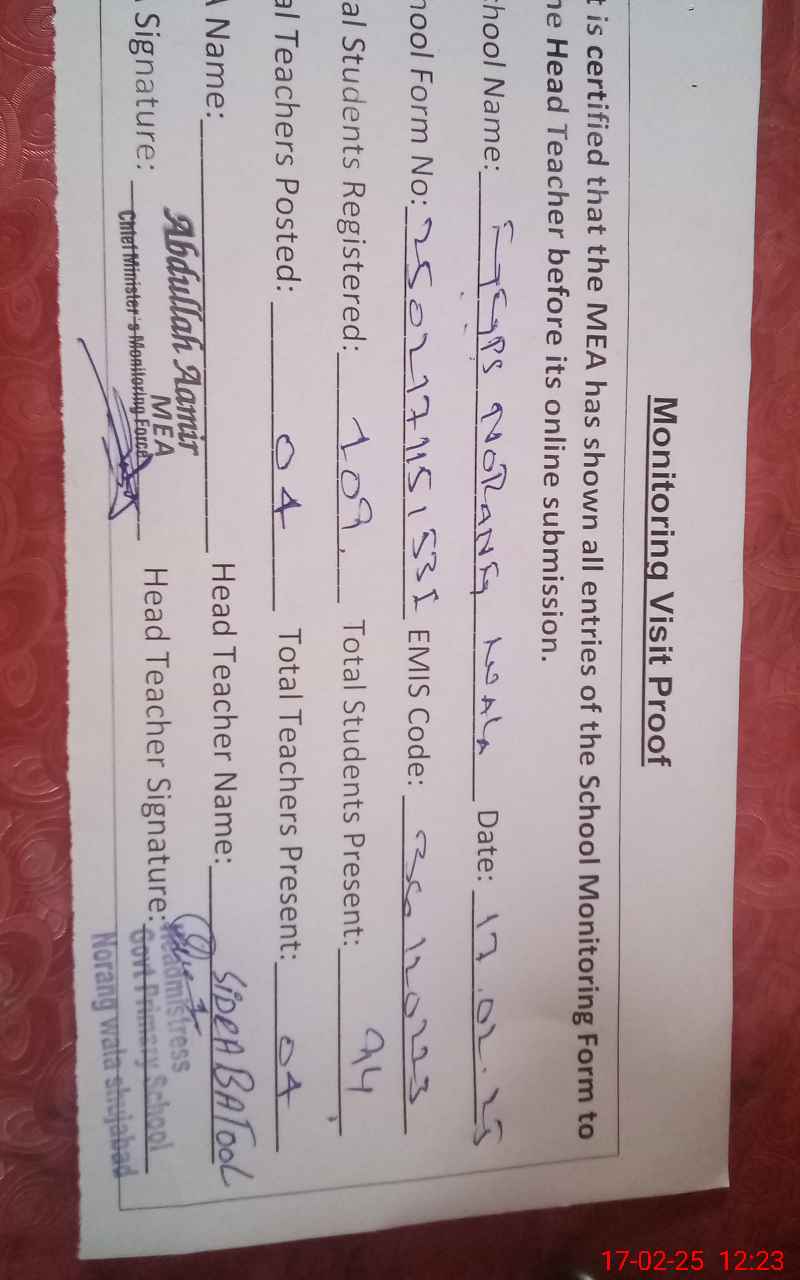 Monitoring Visit Proof
t is certified that the MEA has shown all entries of the School Monitoring Form to
he Head Teacher before its online submission.
chool Name: GGPS NORANG WALA Date: 17.02.25
hool Form No: EMIS Code:
al Students Registered: 109 Total Students Present: 94
al Teachers Posted: 04 Total Teachers Present: 04
A Name: Abdullah Aamir Head Teacher Name: SIDRA BATOOL
MEA
A Signature: Chief Minister's Monitoring Force Head Teacher Signature: Headmistress
Govt Primary School
Norang wala shujabad
17-02-25 12:23